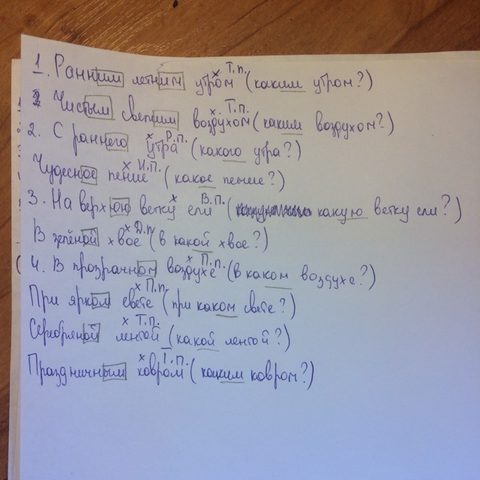 1. Ранним летним утром Т.п. (каким утром?)
2 Чистым светлим воздухом Т.п. (каким воздухом?)
2. С раннего утра Р.п. (какого утра?)
Чудесное пение И.П. (какое пение?)
3. На верхнюю ветку ели В.П. (какую ветку ели?)
В зелёной хвое Д.п (в какой хвое?)
4. В прозрачном воздухе П.п. (в каком воздухе?)
При ярком свете П.п. (при каком свете?)
Серебряной лентой Т.п. (какой лентой?)
Праздничным ковром Т.П. (каким ковром?)